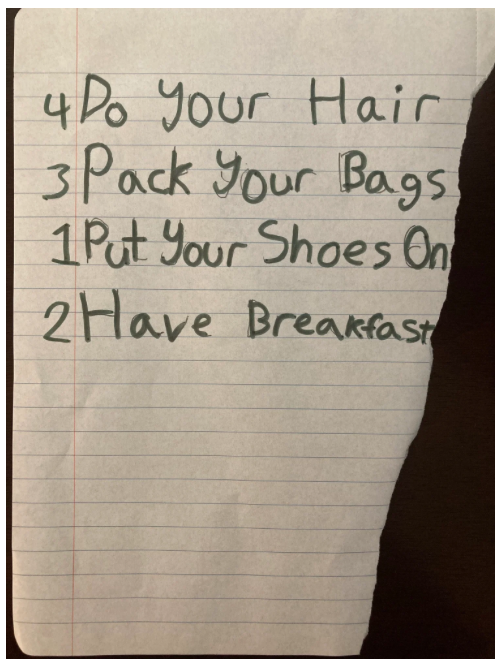 4 Do Your Hair
3 Pack Your Bags
1 Put Your Shoes On
2 Have Breakfast